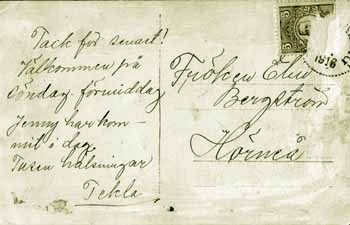 Tack för senast!
Välkommen på
söndag förmiddag
Jenny har kom-
mit i dag.
Tusen hälsningar
Tekla
Fröken Elin
Bergström
Hörneå
5